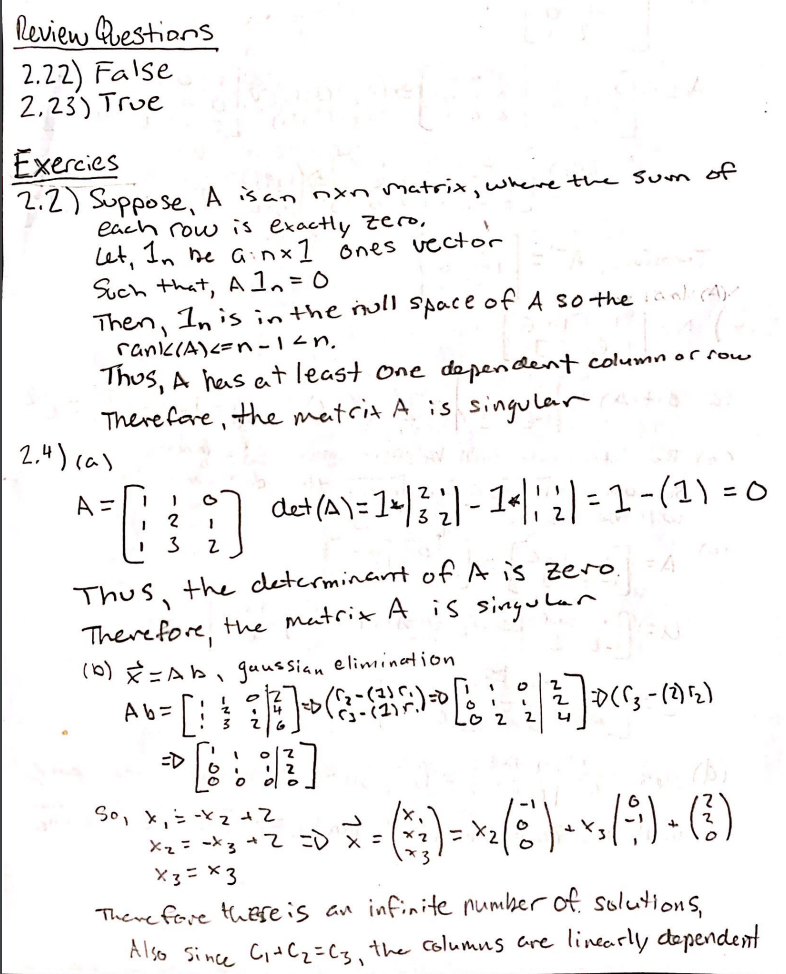 Review Questions
2.22) False
2.23) True
Exercies
2.2) Suppose, A is an nxn matrix, where the sum of
each row is exactly zero.
Let, 1n be a nx1 ones vector
Such that, A 1n = 0
Then, 1n is in the null space of A so the
rank(A)<=n-1<n.
Thus, A has at least one dependent column or row
Therefore, the matrix A is singular
2.4) (a)
A = [1 1 0; 1 2 1; 1 3 2] det(A)=1*|2 1; 3 2| - 1*|1 1; 1 2| = 1-(1) = 0
Thus, the determinant of A is zero.
Therefore, the matrix A is singular
(b) x⃗ = Ab, gaussian elimination
Ab = [1 1 0 | 2; 1 2 1 | 4; 1 3 2 | 6] => (r2-(1)r1; r3-(1)r1) => [1 1 0 | 2; 0 1 1 | 2; 0 2 2 | 4] => (r3-(2)r2)
=> [1 1 0 | 2; 0 1 1 | 2; 0 0 0 | 0]
So, x1 = -x2 + 2
x2 = -x3 + 2 => x⃗ = (x1; x2; x3) = x2(-1; 0; 0) + x3(0; -1; 1) + (2; 2; 0)
x3 = x3
Therefore there is an infinite number of solutions,
Also since C1+C2=C3, the columns are linearly dependent